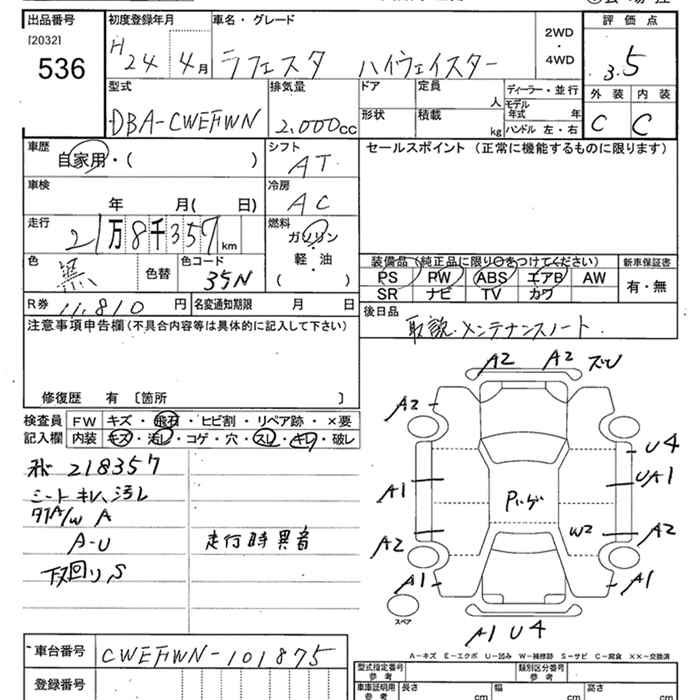 出品番号 初度登録年月 車名・グレード 2WD・4WD 評価点
[2032]
536 H24 4月 ラフェスタ ハイウェイスター 3.5
型式 排気量 ドア 定員 人 ディーラー・並行 外装 内装
モデル年式 年
DBA-CWEFWN 2.000cc 形状 積載 kg ハンドル 左・右 C C
車歴 シフト セールスポイント (正常に機能するものに限ります)
自家用・( ) AT
車検 冷房
年 月( 日) AC
走行 燃料
21万8千357km ガソリン
色 色替 色コード 軽・油 装備品(純正品に限り○をつけてください) 新車保証書
黒 35N ( ) PS PW ABS エアB AW 有・無
SR ナビ TV カワ
R券 11.810円 名変通知期限 月 日
後日品 取説・メンテナンスノート
注意事項申告欄(不具合内容等は具体的に記入して下さい)
修復歴 有 〔箇所 〕
検査員 FW キズ・飛石・ヒビ割・リペア跡・×要
記入欄 内装 キズ・汚レ・コゲ・穴・スレ・キレ・破レ
218357
シートキレ、汚レ
A/W A
A-U 走行時異音
下回りS
A2 A2 ズレ
A2
U4
A1 UA1
Pいげ
W2
A2 A2
A1 A1
スペア
A1 U4
A-キズ E-エクボ U-凹み W-補修跡 S-サビ C-腐食 ××-交換済
車台番号 CWEFWN-101875
型式指定番号 参考 類別区分番号 参考
登録番号 車庫証明用 参考 長さ cm 幅 cm 高さ cm